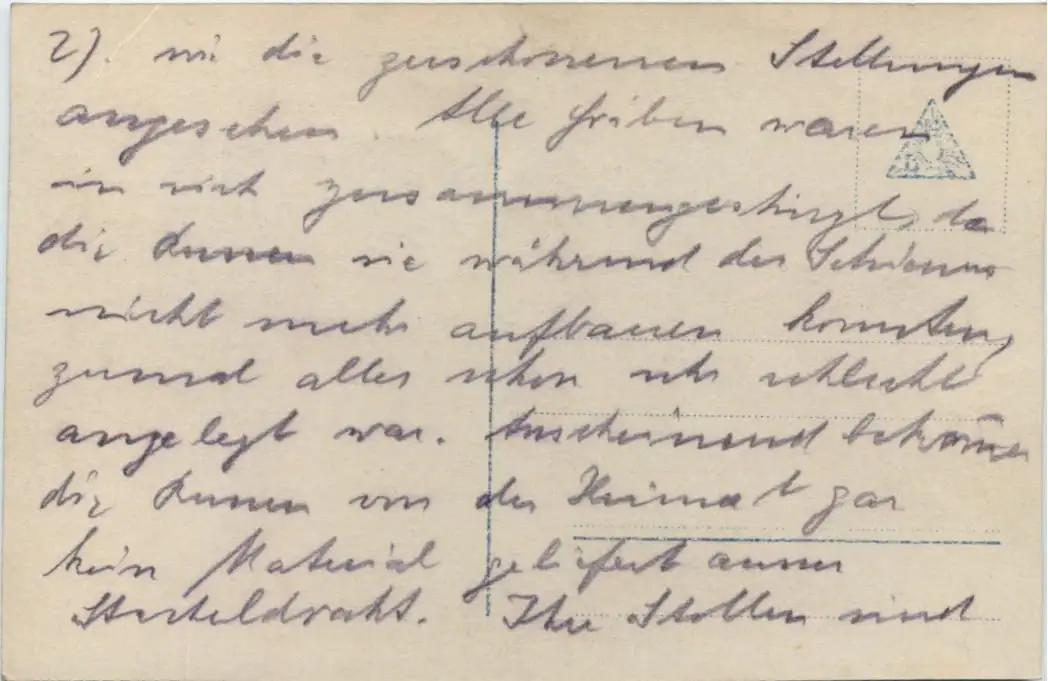 2). wir die zerschossenen Stellungen
angesehen. Alle Gräben waren
in sich zusammengestürzt, da
die Russen sie während des
nicht mehr aufbauen konnten,
zumal alles schon sehr schlecht
angelegt war. Anscheinend bekamen
die Russen von der Heimat gar
kein Material geliefert ausser
Stacheldraht. Ihre Stollen sind